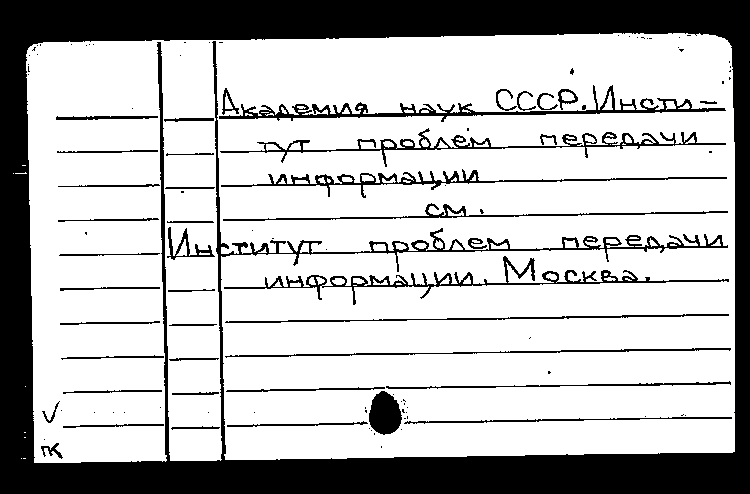 Академия наук СССР. Инсти-
тут проблем передачи
информации
см.
Институт проблем передачи
информации. Москва.
V
пк